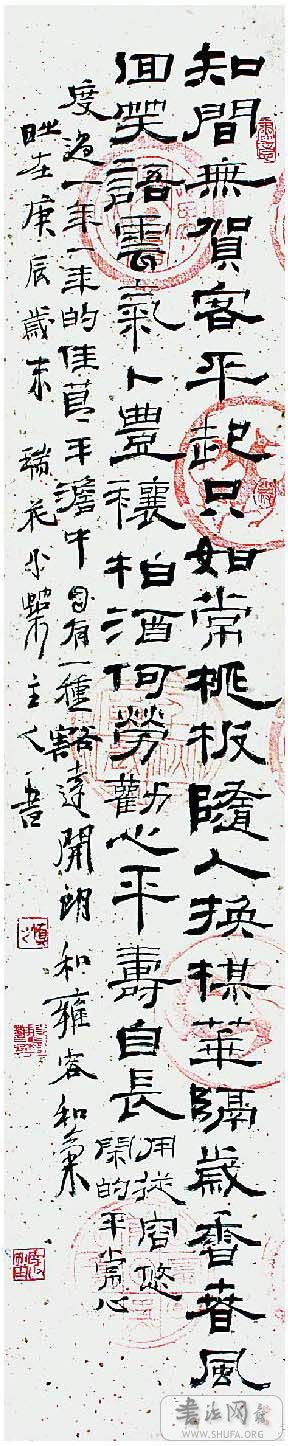 知間無賀客平起只如常桃板隨人換楳華隔歲香春風
回笑語雲氣卜豊穰柏酒何勞勸心平壽自長
用從容悠
閑的平常心
度過一年一年的佳節平澹中自有一種豁達開朗和雍容和樂
時在庚辰歲末 瑞花小築主人書
书法网
WWW.SHUFA.ORG